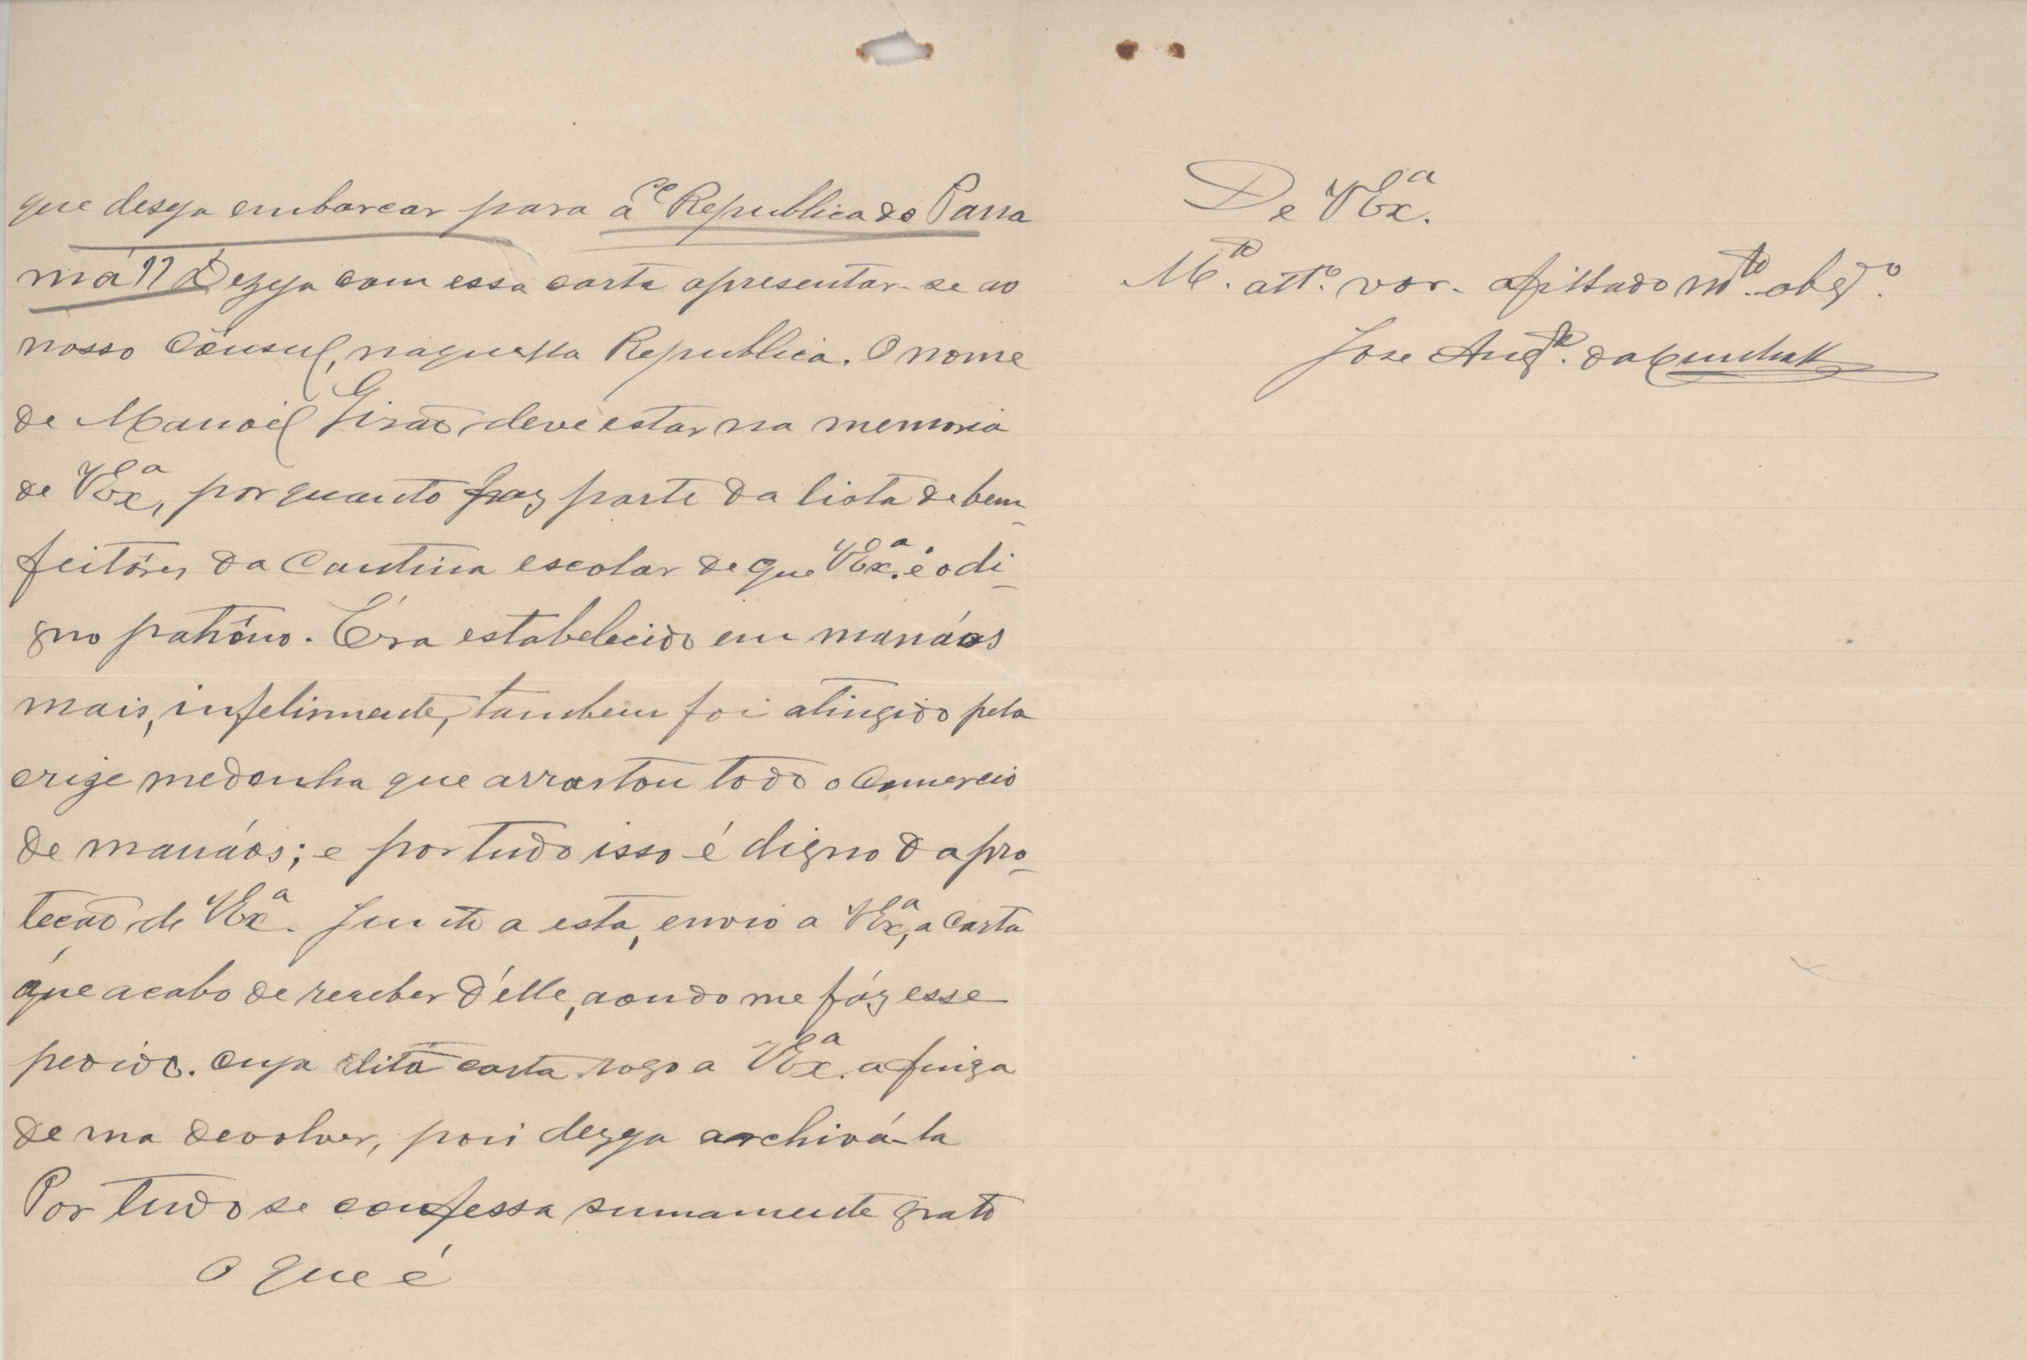 que deseja embarcar para a Republica do Pana
má" Dezeja com essa carta apresentar-se ao
nosso Consul, naquella Republica. O nome
de Manoel Girão, deve estar na memoria
de VExª, porquanto faz parte da lista de bem-
feitóres da Cantina escolar de que VExª. é o di-
gno patrôno. Éra estabelecido em manáos
mais, infelismente, tambem foi atingido pela
crize medonha que arrastou todo o Comercio
de manáos; e por tudo isso é digno da pro-
tecão, de VExª. Junto a esta, envio a VExª, a Carta
que acabo de receber d'élle, aondo me fáz esse
pedido. cuja dita carta rogo a VExª. a fineza
de ma devolver, pois dezeja archivá-la
Por tudo se confessa sumamente grato
O que é
De VExª.
Mto. attº. vor. afilhado mto. obgdº.
Jose Augto. da Cunha